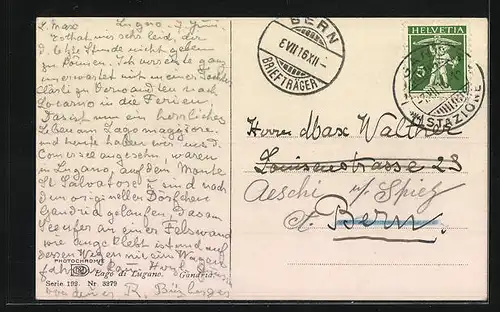 L. Max Lugano. 7. Juni.
Es that mir sehr leid, dir
d. letzte Stunde nicht geben
zu können. Ich verreiste ganz
unerwartet mit meiner Tochter
nach
Locarno in die Ferien.
Das ist nun ein herrliches
Leben am Lago maggiore.
und heute haben wir uns d.
Comersee angesehn, waren
in Lugano, auf dem Monte
St Salvatore & sind nach
dem originellen Dörfchen
Gandria gelaufen, das am
Seeufer an einer Felswand
wie angeklebt ist und auf
dessen Wegen nie ein Wagen
fahren kann. Herzl. Grüsse
von deiner R.
PHOTOCHROMIE
Lago di Lugano. Gandria.
Serie 192. Nr. 3379
BERN
6 VII 16 XII
BRIEFTRÄGER
HELVETIA
5
STAZIONE
Herrn Max Walther
Louisenstrasse 23
Aeschi b/ Spiez
Ct. Bern.